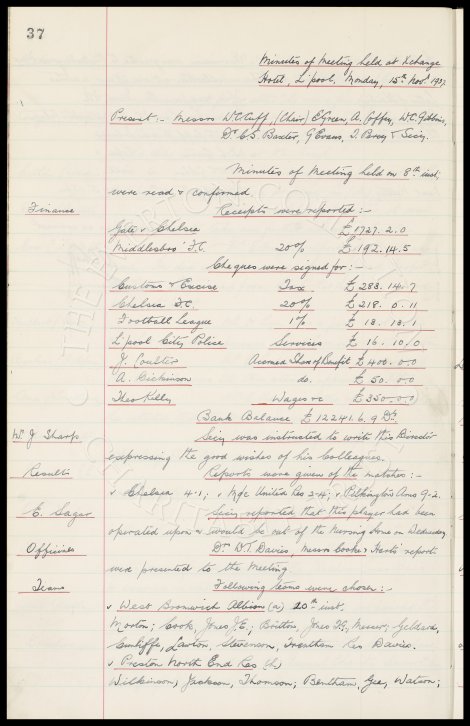 37
Minutes of Meeting held at Xchange
Hotel, L'pool, Monday, 15th Novr 1937.
Present :- Messrs W.C. Cuff, (Chair) E. Green, A. Coffey, W.C. Gibbins,
Dr C.S. Baxter, G. Evans, & Secy.
Minutes of Meeting held on 8th inst,
were read & confirmed
Finance Receipts were reported :-
Gate v Chelsea £1727. 2. 0
Middlesbro' F.C. 20% £ 192. 14. 5
Cheques were signed for :-
Customs & Excise Tax £ 283. 14. 7
Chelsea F.C. 20% £ 218. 0. 11
Football League 1% £ 13. 13. 1
L'pool City Police Services £ 16. 10. 0
J. Coulter Accrued Share of Benefit £ 400. 0. 0
A. Dickinson do. £ 50. 0. 0
Theo Kelly Wages &c £ 350. 0. 0
Bank Balance £ 12241. 6. 9 Dr.
Wm J Sharp Secy was instructed to write this Director
expressing the good wishes of his colleagues.
Results Reports were given of the matches :-
v Chelsea 4-1; v N'cle United Res 2-4; v Pilkington's Ams 9-2.
E. Sagar Secy reported that this player had been
operated upon & would be out of the Nursing Home on Wednesday
Officials Dr D.T. Davies, Messrs Cooke & Harts' report
were presented to the Meeting.
Teams Following teams were chosen :-
v West Bromwich Albion (a) 20th inst.
Morton; Cook, Jones J.E.; Britton, Jones T.G., Mercer; Geldard,
Cunliffe, Lawton, Stevenson, Trentham Res Davies.
v Preston North End Res (h)
Wilkinson; Jackson, Thomson; Bentham, Gee, Watson;